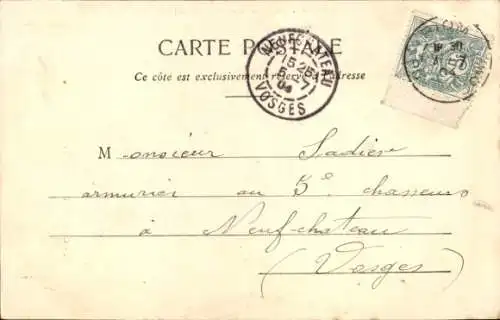 CARTE POSTALE
Ce côté est exclusivement réservé à l'adresse
NEUFCHATEAU
15 25
5 -7
04
VOSGES
Monsieur Sadier
armurier au 5e chasseurs
à Neufchateau
(Vosges)